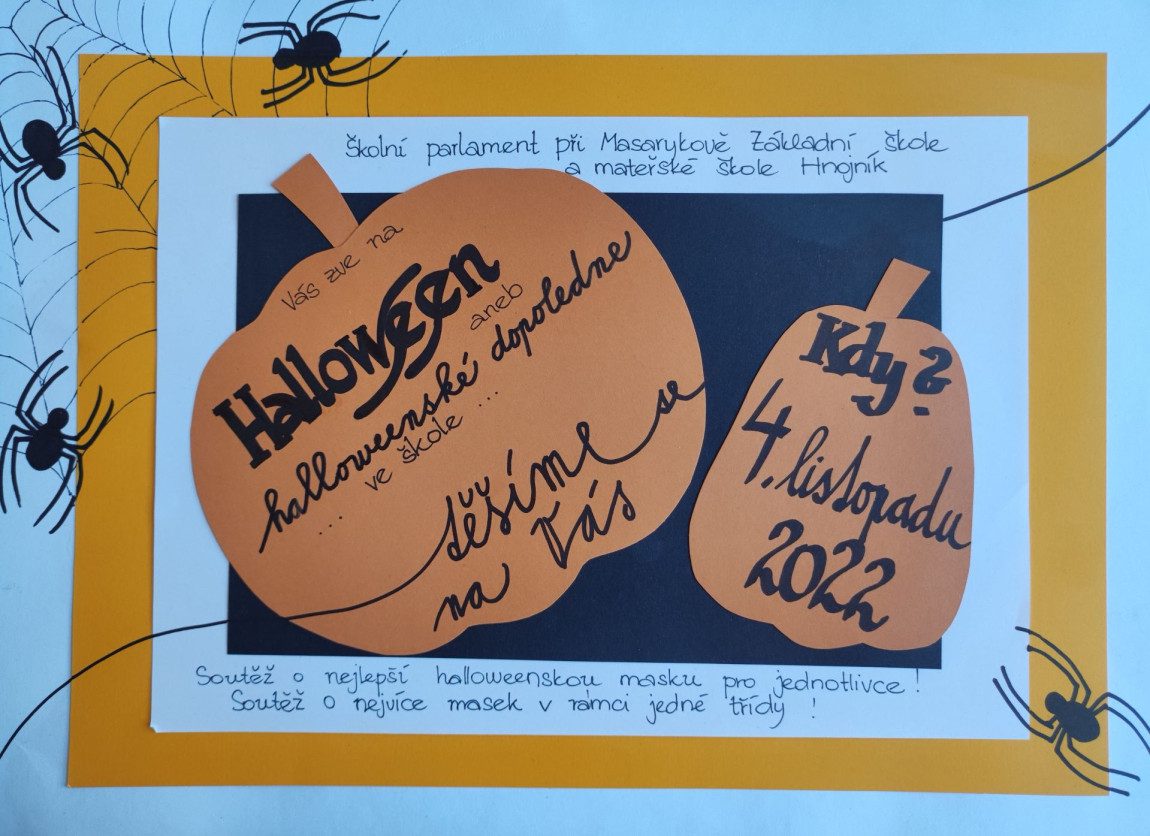 Školní parlament při Masarykově Základní škole
a mateřské škole Hnojník
Vás zve na
Halloween
aneb
halloweenské dopoledne
... ve škole ...
těšíme se
na Vás
Kdy?
4. listopadu
2022
Soutěž o nejlepší halloweenskou masku pro jednotlivce!
Soutěž o nejvíce masek v rámci jedné třídy!